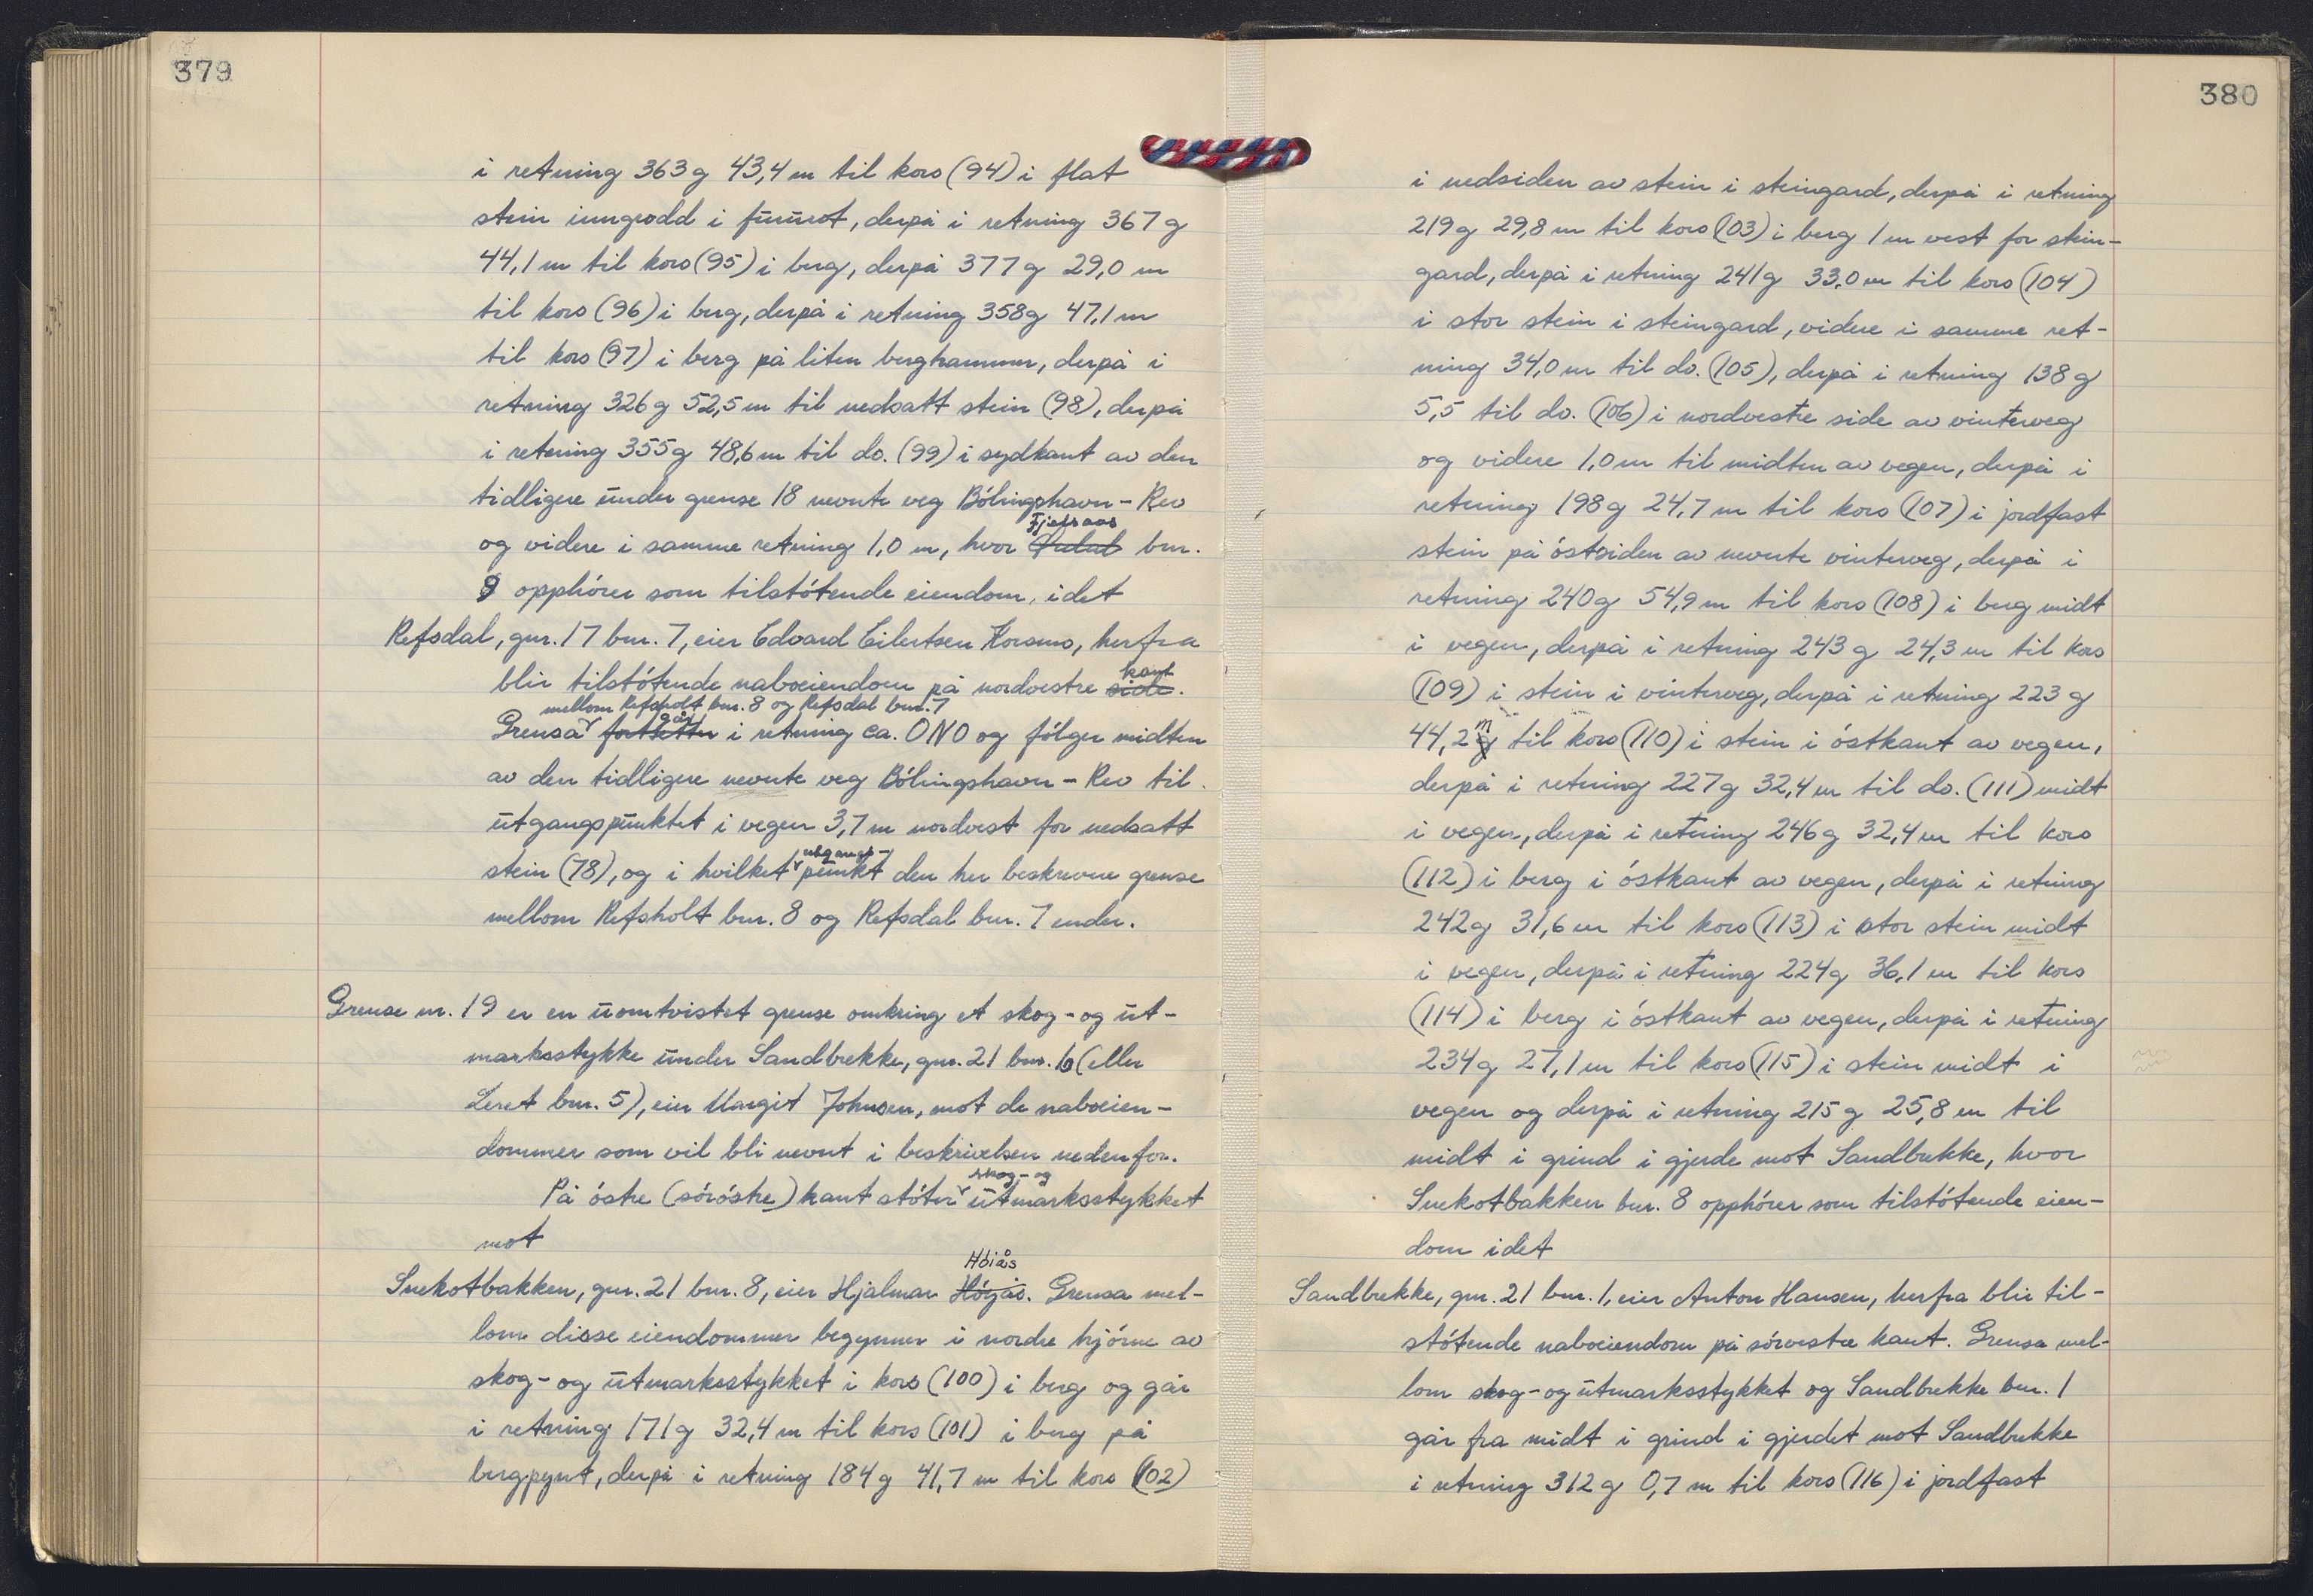 379
i retning 363g 43,4 m til kors (94) i flat
stein inngrodd i fururot, derpå i retning 367 g
44,1 m til kors (95) i berg, derpå 377 g 29,0 m
til kors (96) i berg, derpå i retning 358g 47,1 m
til kors (97) i berg på liten berghammer, derpå i
retning 326 g 52,5 m til nedsatt stein (98), derpå
i retning 355 g 48,6 m til do. (99) i sydkant av den
tidligere under grense 18 nevnte veg Bölingshavn - Rev
Fjelsaas
og videre i samme retning 1,0 m, hvor bnr.
9 opphörer som tilstötende eiendom, idet
Refsdal, gnr. 17 bnr. 7, eier Edvard Eilertsen Korsmo, herfra
kant
blir tilstötende naboeiendom på nordvestre side.
mellom Refsholt bnr. 8 og Refsdal bnr. 7
går
Grensa fortsetter i retning ca. ONO og fölger midten
av den tidligere nevnte veg Bölingshavn - Rev til
utgangspunktet i vegen 3,7 m nordvest for nedsatt
utgangs-
stein (78), og i hvilket punkt den her beskrevne grense
mellom Refsholt bnr. 8 og Refsdal bnr. 7 ender.
Grense nr. 19 er en uomtvistet grense omkring et skog- og ut-
marksstykke under Sandbrekke, gnr. 21 bnr. 6 (eller
Leret bnr. 5), eier Margit Johnsen, mot de naboeien-
dommer som vil bli nevnt i beskrivelsen nedenfor.
skog- og
På östre (söröstre) kant stöter utmarksstykket
mot
Höiås
Snekotbakken, gnr. 21 bnr. 8, eier Hjalmar Högås. Grensa mel-
lom disse eiendommer begynner i nordre hjörne av
skog- og utmarksstykket i kors (100) i berg og går
i retning 171g 32,4 m til kors (101) i berg på
bergpynt, derpå i retning 184 g 41,7 m til kors (102)
380
i nedsiden av stein i steingard, derpå i retning
219 g 29,8 m til kors (103) i berg 1 m vest for stein-
gard, derpå i retning 241g 33,0 m til kors (104)
i stor stein i steingard, videre i samme ret-
ning 34,0 m til do. (105), derpå i retning 138 g
5,5 til do. (106) i nordvestre side av vinterveg
og videre 1,0 m til midten av vegen, derpå i
retning 198 g 24,7 m til kors (107) i jordfast
stein på östsiden av nevnte vinterveg, derpå i
retning 240 g 54,9 m til kors (108) i berg midt
i vegen, derpå i retning 243 g 24,3 m til kors
(109) i stein i vinterveg, derpå i retning 223 g
m
44,2 g til kors (110) i stein i östkant av vegen,
derpå i retning 227 g 32,4 m til do. (111) midt
i vegen, derpå i retning 246 g 32,4 m til kors
(112) i berg i östkant av vegen, derpå i retning
242 g 31,6 m til kors (113) i stor stein midt
i vegen, derpå i retning 224g 36,1 m til kors
(114) i berg i östkant av vegen, derpå i retning
234 g 27,1 m til kors (115) i stein midt i
vegen og derpå i retning 215 g 25,8 m til
midt i grind i gjerde mot Sandbrekke, hvor
Snekotbakken bnr. 8 opphörer som tilstötende eien-
dom idet
Sandbrekke, gnr. 21 bnr. 1, eier Anton Hansen, herfra blir til-
stötende naboeiendom på sörvestre kant. Grensa mel-
lom skog- og utmarksstykket og Sandbrekke bnr. 1
går fra midt i grind i gjerdet mot Sandbrekke
i retning 312 g 0,7 m til kors (116) i jordfast